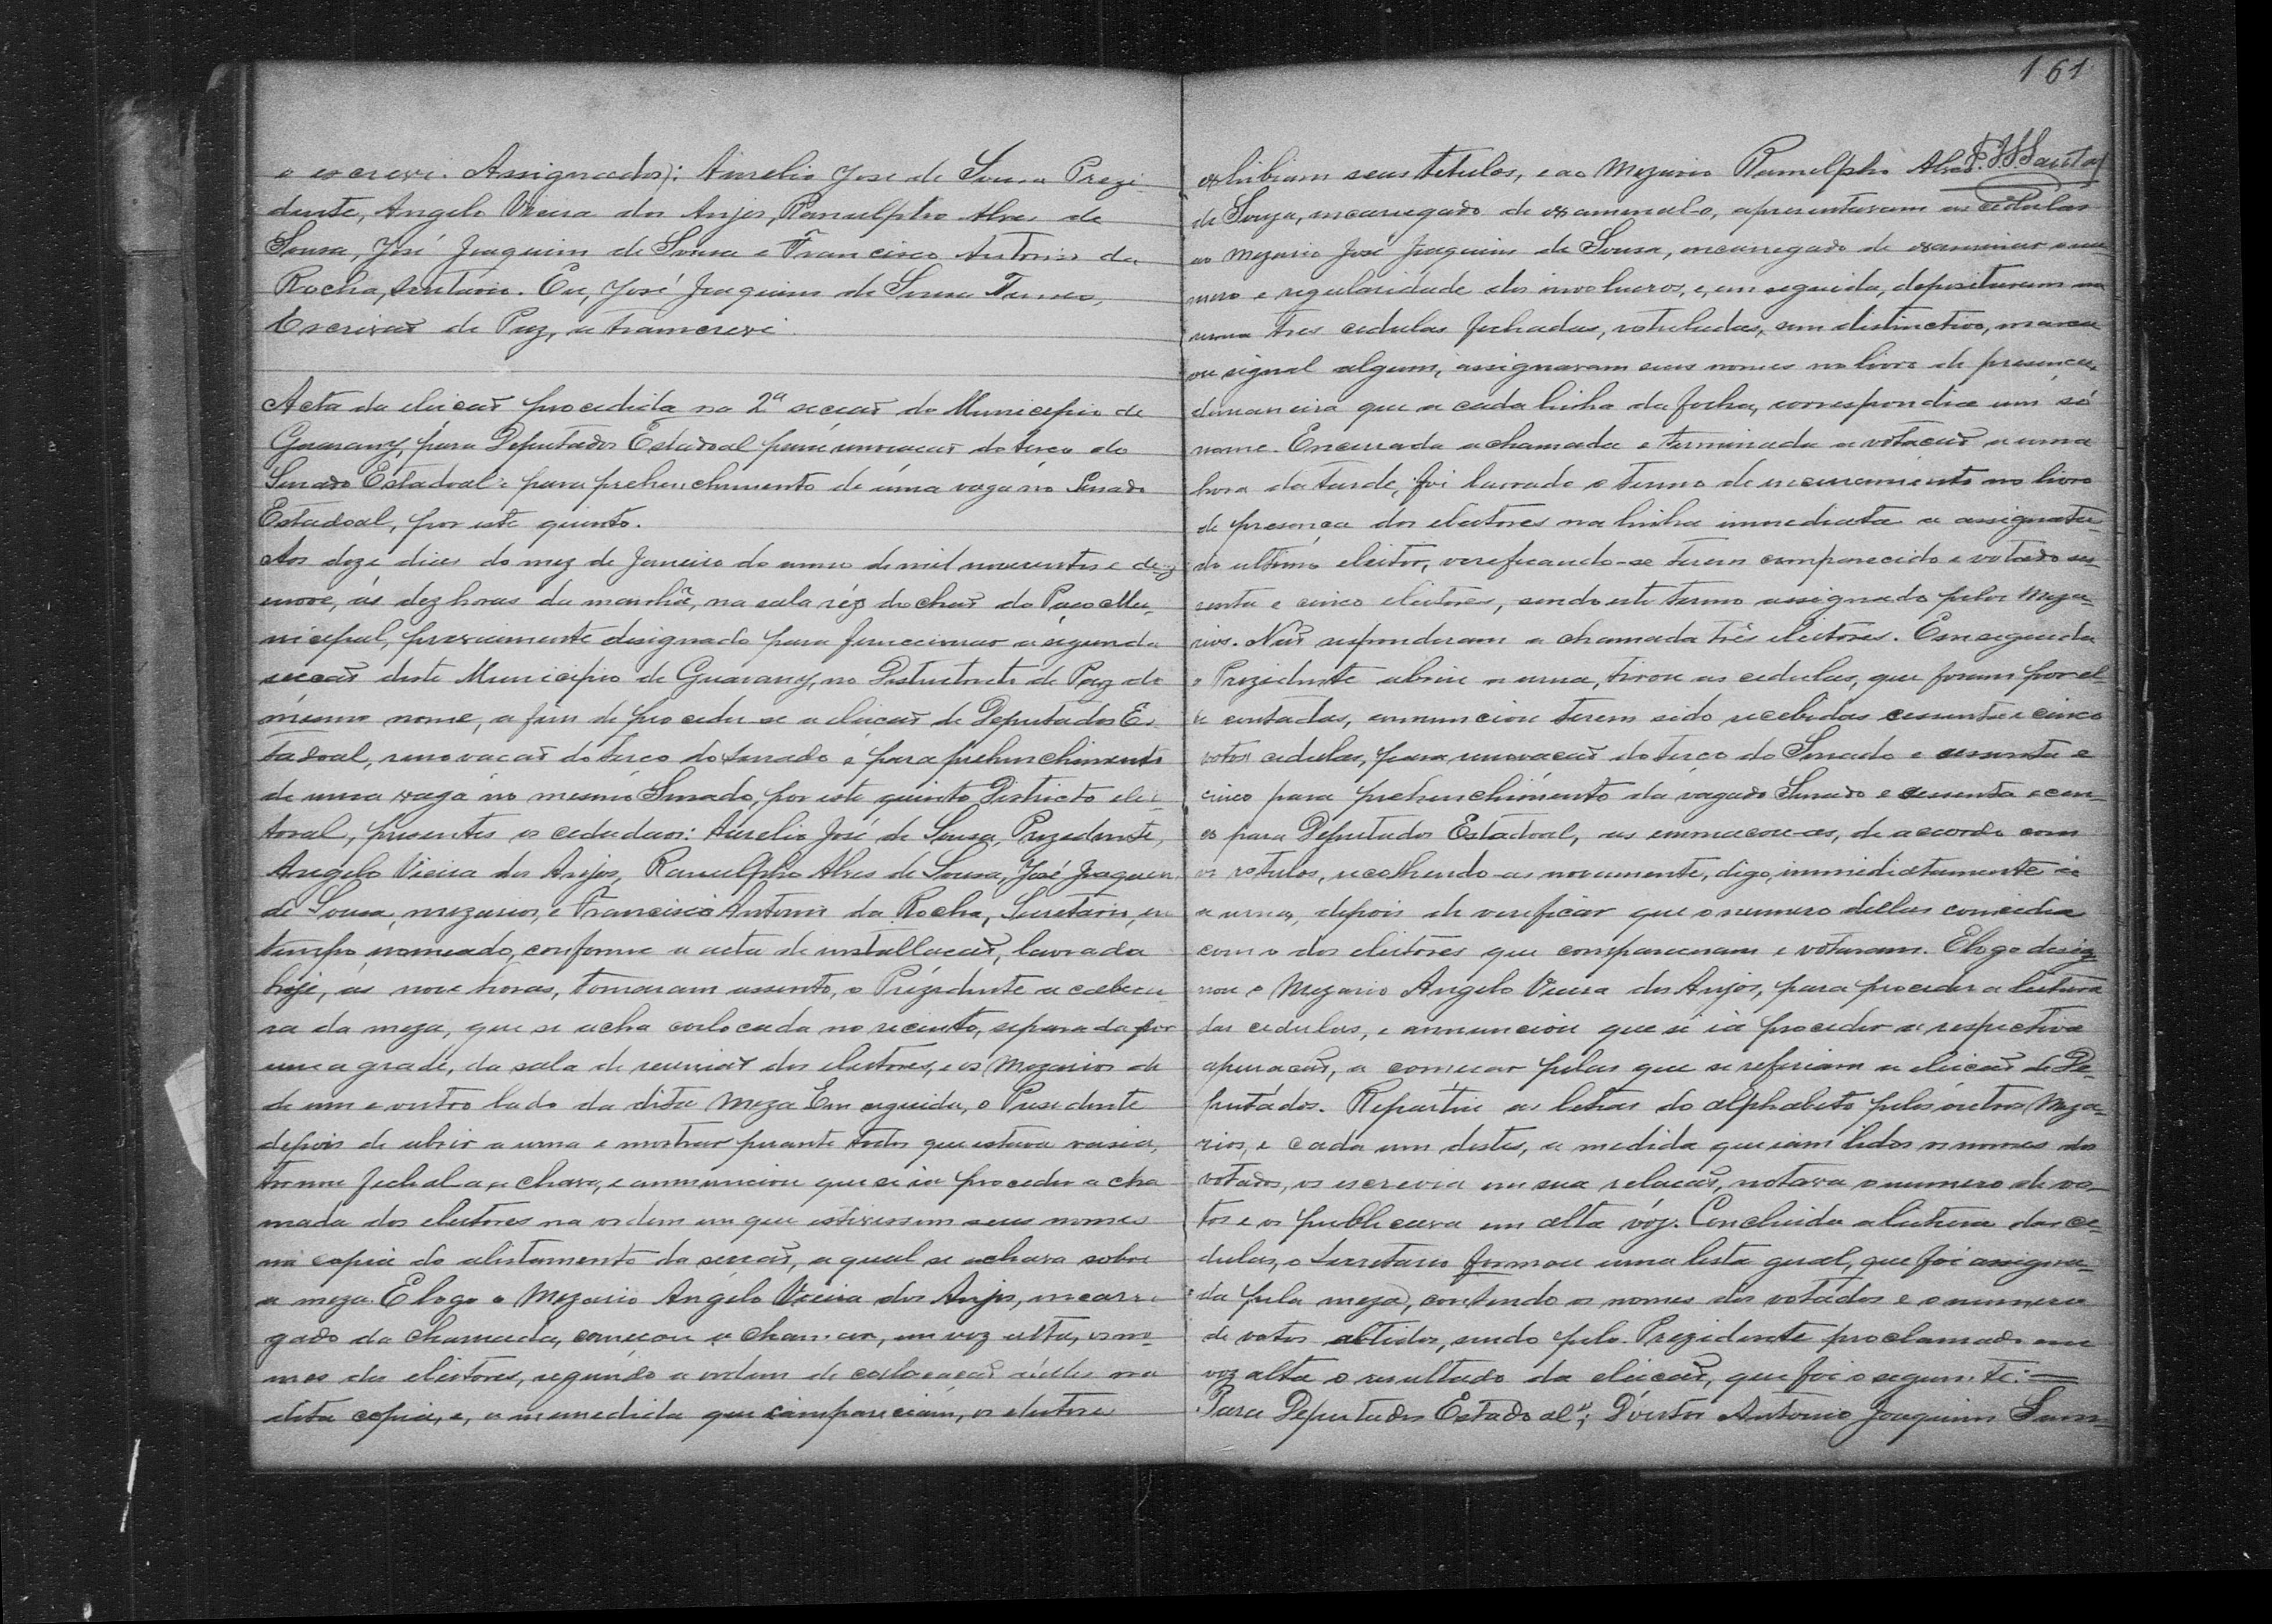 o escrevi. Assignados): Aurelio José de Sousa Prezi-
dente, Angelo Vieira dos Anjos, Ranulpho Alves de
Sousa, José Joaquim de Sousa e Francisco Antonio da
Rocha, Secretario. Eu, José Joaquim de Sousa
Escrivaõ de Paz, a transcrevi.
Acta da eleicaõ procedida na 2ª seccaõ do Municipio de
Guarany, para Deputados Estadoal para renovacaõ do terco do
Senado Estadoal e para prehenchimento de uma vaga no Senado
Estadoal, por este quinto.
Aos doze dias do mez de Janeiro do anno de mil novecentos e dez
enove, ás dez horas da manhã, na sala réz do chaõ do Paco Mu-
nicipal, previamente designado para funccionar a segunda
seccaõ deste Municipio de Guarany, no Destricto de Paz do
mesmo nome, a fim de proceder se a eleicaõ de Deputados Es-
tadoal, renovacaõ do terco do Senado e para prehenchimento
de uma vaga no mesmo Senado, por este quinto Districto elei-
toral, presentes os cedadaos: Aurelio José de Sousa, Prezedente,
Angelo Vieira dos Anjos, Ranulpho Alves de Sousa, José Joaquim
de Sousa, mezarios, e Francisco Antonio da Rocha, Secretario, em
tempo nomeado, conforme a acta de installacaõ, lavrada
hoje, ás nove horas, tomaram assento, o Prezidente a cabecei-
ra da meza, que se acha collocada no recinto, separada por
uma grade, da sala de reuniaõ dos eleitores, e os Mezarios de
de um e outro lado da dita Meza Em seguida, o Presidente
depois de abrir a urna e mostrar perante todos que estava vasia,
tornou fechal a a chave, e annunciou que se ia proceder a cha
mada dos eleitores na ordem em que estivessem seus nomes
na copia do alistamento da seccaõ, a qual se achava sobre
a meza. E logo o Mezario Angelo Vieira dos Anjos, encarre
gado da chamada, comecou a chamar, em voz alta, os no-
mes dos eleitores, segundo a ordem de collocacaõ delles na
dita copia, e, a mmedida que compareciam, os eleitores
161
exhibiam seus titulos, e ao Mezario Ranulpho Alves
de Souza, encarregado de examinal-o, apresentavam as cedulas
ao Mezario José Joaquim de Sousa, encarregado de examinar o nu
mero e regularidade dos involucros, e, em seguida, depositavam na
urna tres cedulas fechadas, rotuladas, sem distinctivo, marca
ou signal algum, assignaram seus nomes no livro de presenca,
demaneira que a cada linha da folha, correspondia um só
nome. Encerrada a chamada e terminada a votacaõ a uma
hora da tarde, foi lavrado o termo de encerramento no livro
de presenca dos eleitores na linha immediata a assignatu-
do ultimo eleitor, verificando-se terem comparecido e votado ses-
senta e cinco eleitores, sendo este termo assignado pelos Meza-
rios. Naõ responderam a chamada três eleitores. Em seguida
o Prezidente abriu a urna, tirou as cedulas, que foram por el-
le contadas, annunciou terem sido recebidas cessenta e cinco
votos cedulas, para renovacaõ do terco do Senado e cessenta e
cinco para prehenchimento da vaga do Senado e cessenta e cen-
co para Deputados Estadoal, as emmacou-as, de acordo com
os rotulos, recolhendo-as novamente, digo, immediatamente á
a urna, depois de verificar que o numero dellas concedia
com o dos eleitores que compareceram e votaram. E logo desig
nou o Mezario Angelo Vieira dos Anjos, para proceder a leitura
das cedulas, e annunciou que se ia proceder a respectiva
apuracaõ, a comecar pelas que se referiam a eleicaõ de De-
putados. Repartiu as letras do alphabeto pelos outros Meza-
rios, e cada um destes, a medida que iam lidos os nomes dos
votados, os escrevia em sua relacaõ, notava o numero de vo-
tos e os publicava em alta vóz. Concluida a leitura das ce-
dulas, o Secretario formou uma lista geral, que foi assigna-
da pela meza, contendo os nomes dos votados e o numero
de votos obtidos, sendo pelo Prezidente proclamado em
voz alta o resultado da eleicaõ, que foi o seguinte: =
Para Deputados Estadoal; Doutor Antonio Joaquim